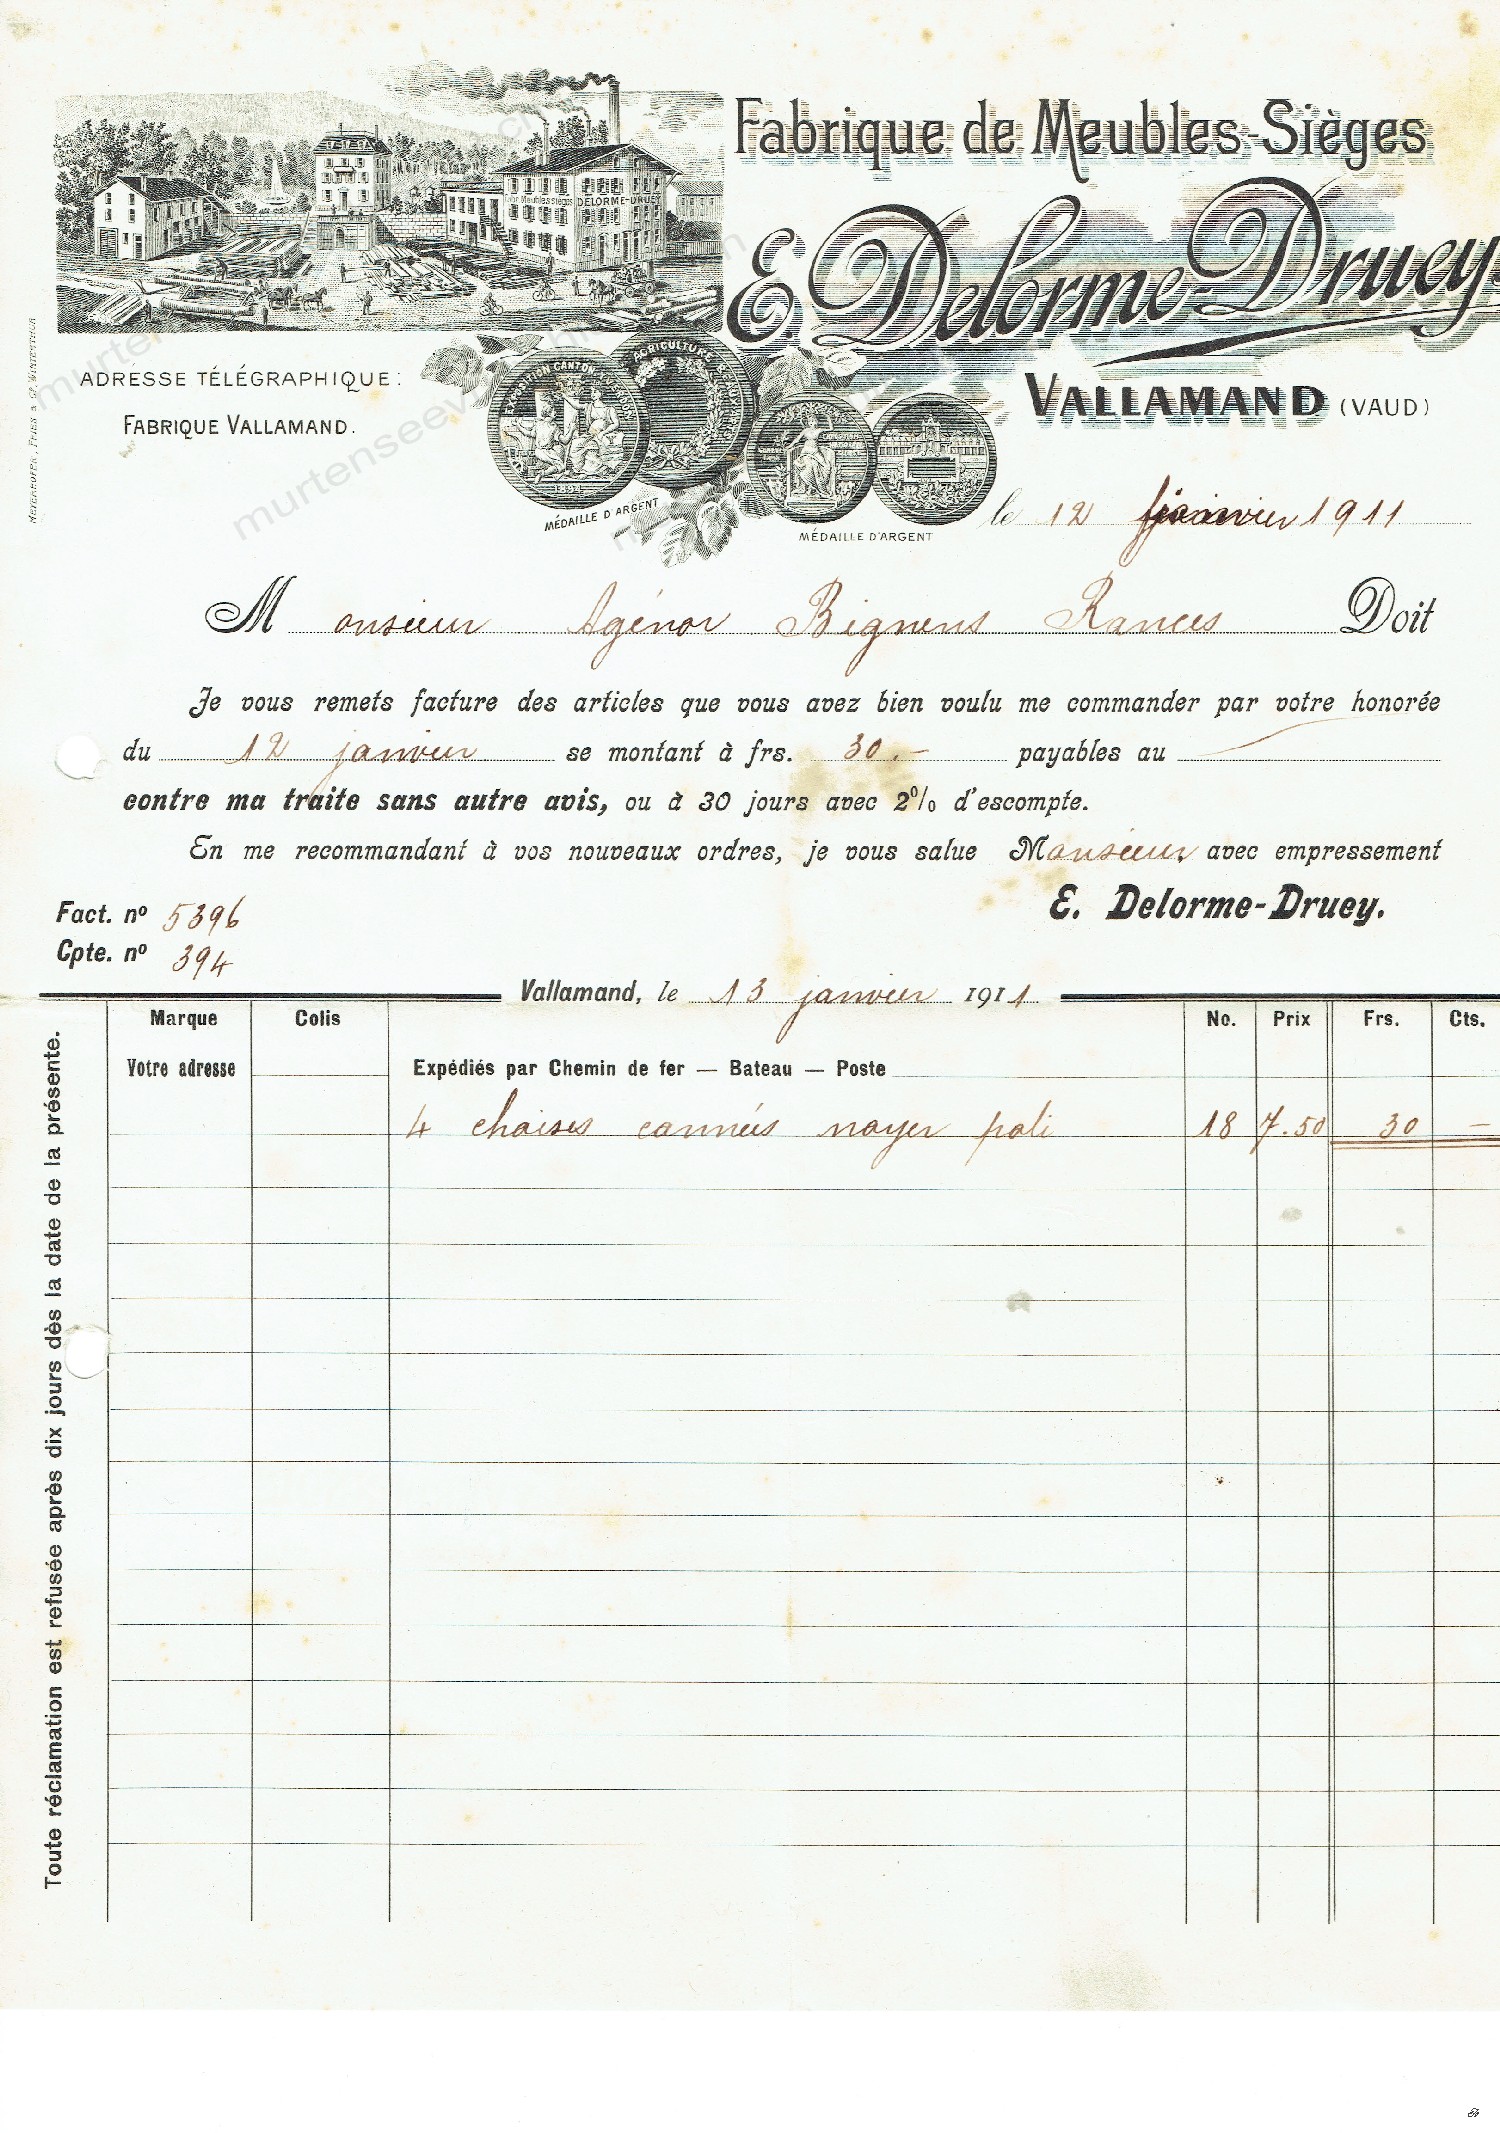 Fabrique de Meubles-Sièges
E. Delorme-Druey
VALLAMAND (VAUD)
Fabr. Meubles sièges DELORME-DRUEY
ADRESSE TÉLÉGRAPHIQUE:
FABRIQUE VALLAMAND.
AGRICULTURE
1894
MÉDAILLE D'ARGENT
MÉDAILLE D'ARGENT
le 12 janvier 1911
Monsieur Agénor Bignens Rances Doit
Je vous remets facture des articles que vous avez bien voulu me commander par votre honorée
du 12 janvier se montant à frs. 30.— payables au
contre ma traite sans autre avis, ou à 30 jours avec 2% d'escompte.
En me recommandant à vos nouveaux ordres, je vous salue Monsieur, avec empressement
E. Delorme-Druey.
Fact. nº 5396
Cpte. nº 394
Vallamand, le 13 janvier 1911
Marque Colis No. Prix Frs. Cts.
Votre adresse Expédiés par Chemin de fer — Bateau — Poste
4 chaises cannées noyer poli 18 7.50 30 —
Toute réclamation est refusée après dix jours dès la date de la présente.